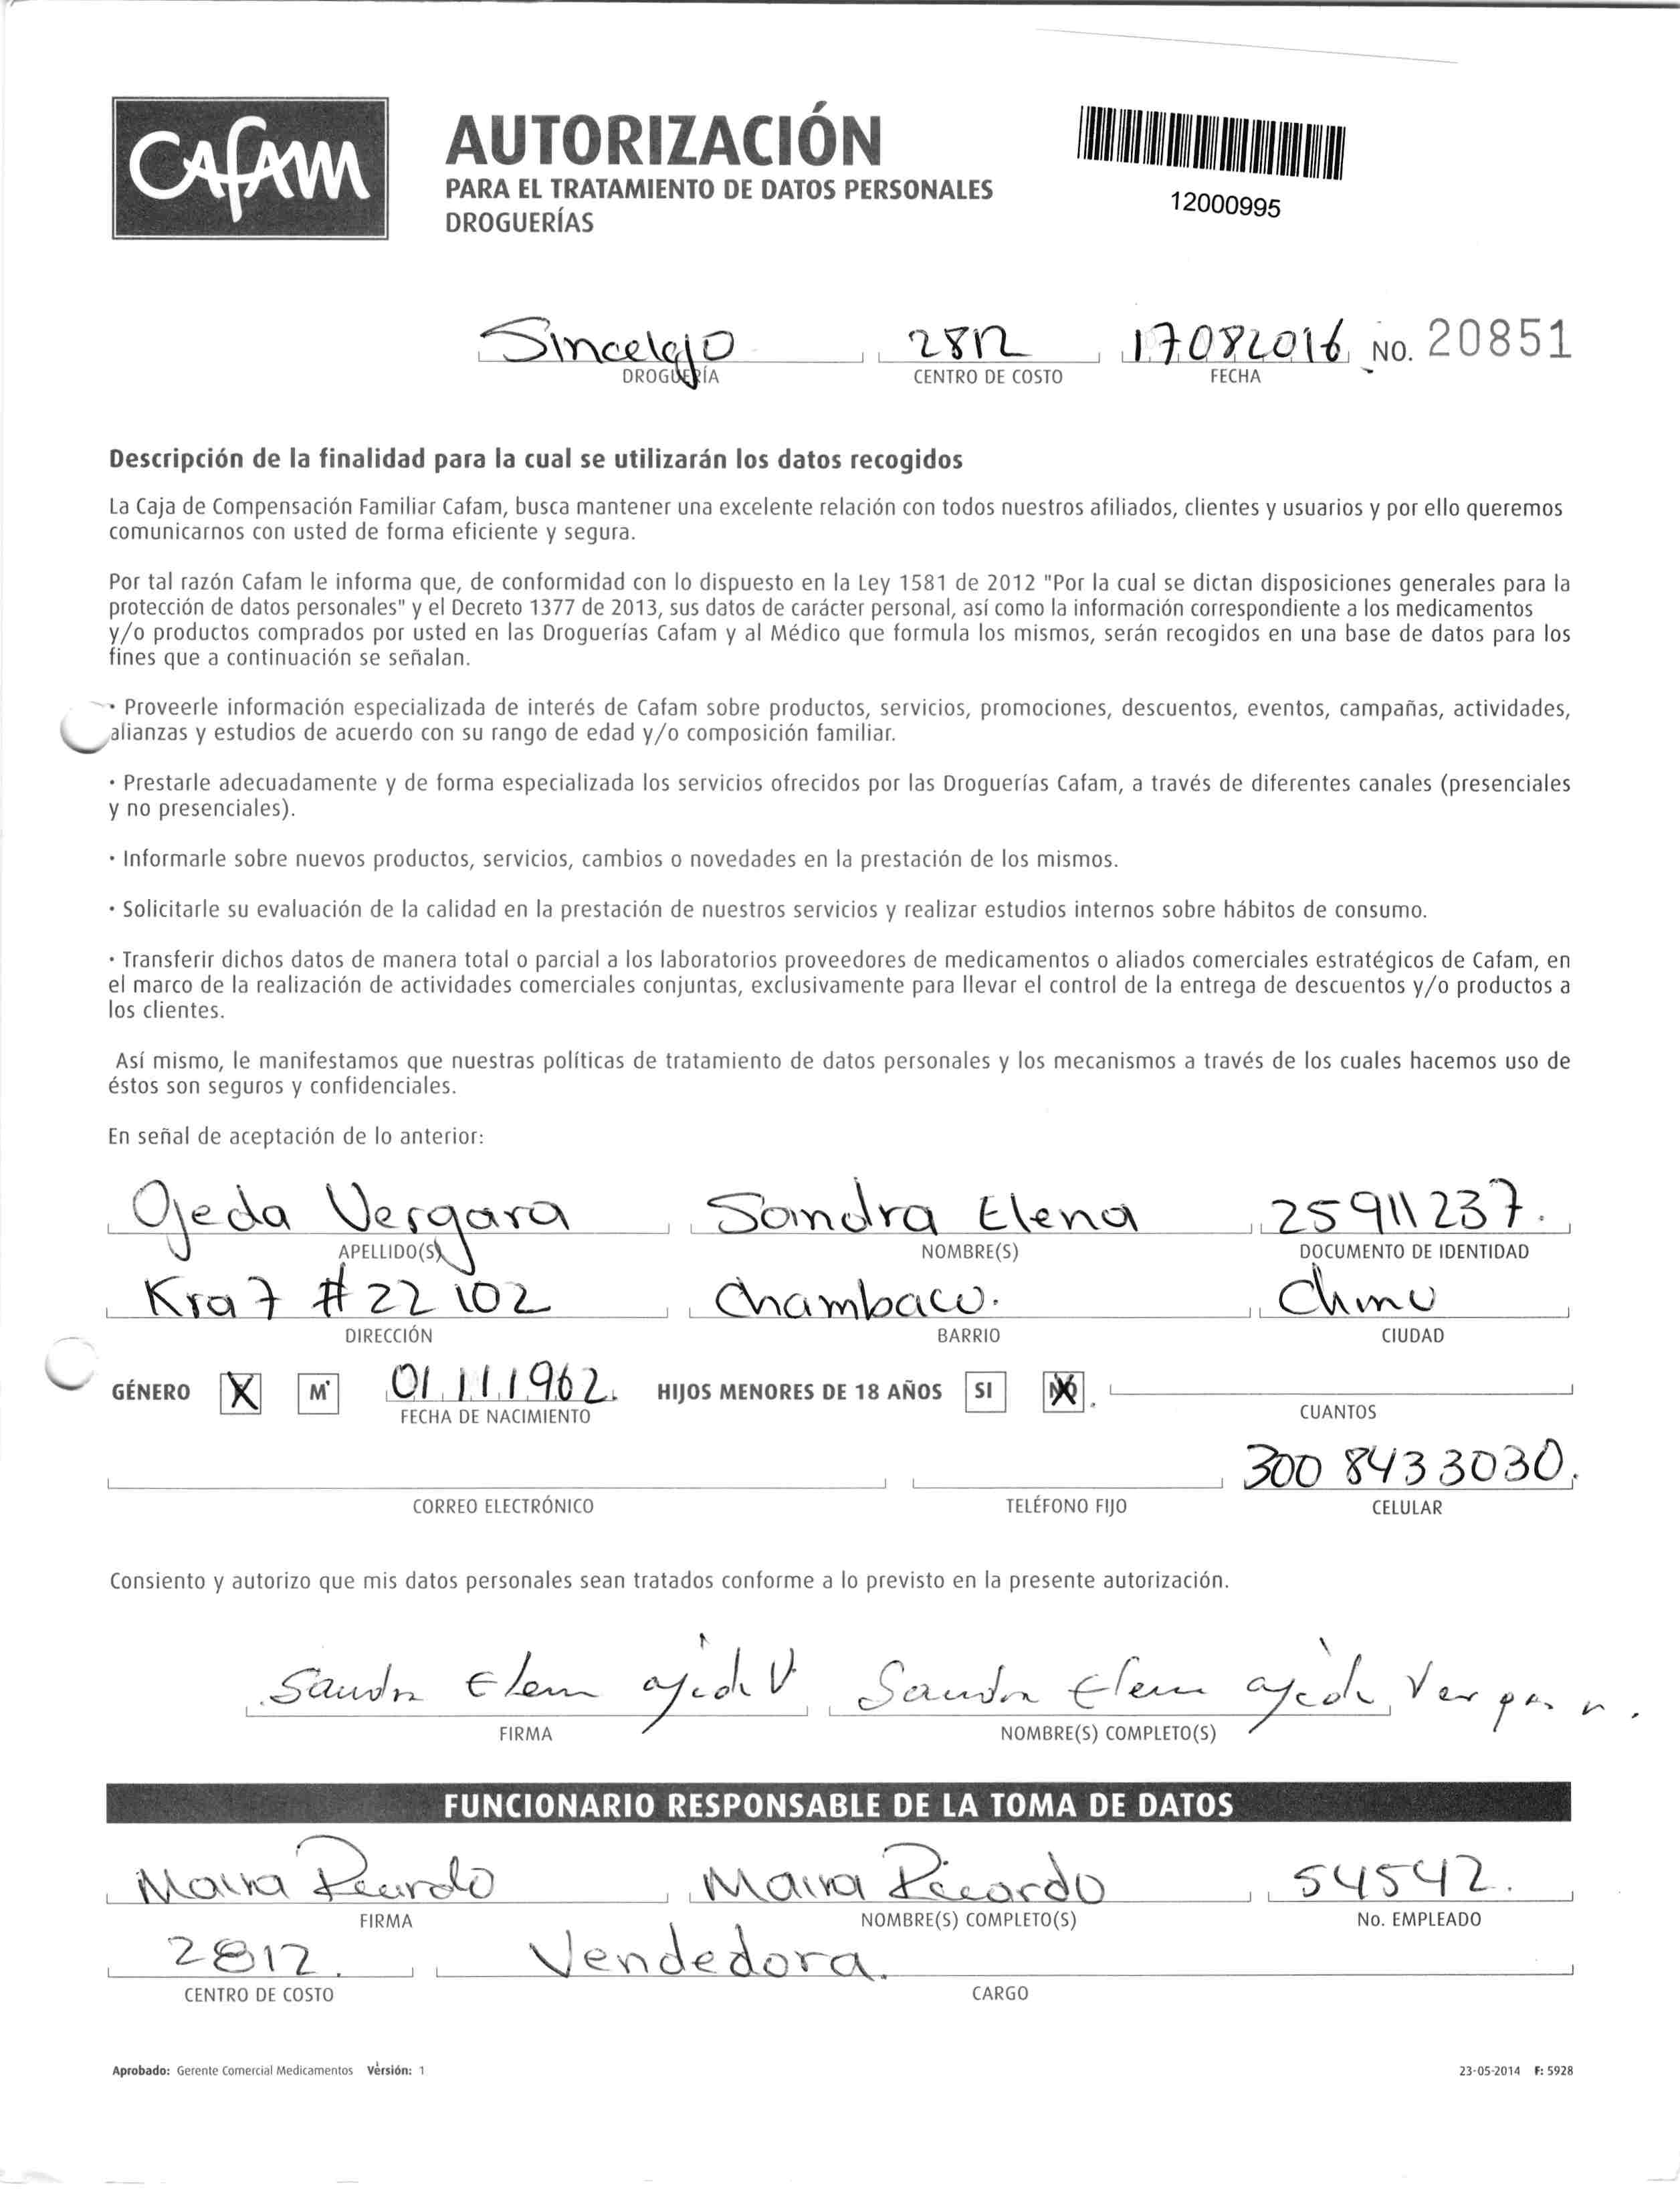 CAFAM
AUTORIZACIÓN
PARA EL TRATAMIENTO DE DATOS PERSONALES
DROGUERÍAS
12000995
Sincelejo 2812 17082016 NO. 20851
DROGUERÍA CENTRO DE COSTO FECHA
Descripción de la finalidad para la cual se utilizarán los datos recogidos
La Caja de Compensación Familiar Cafam, busca mantener una excelente relación con todos nuestros afiliados, clientes y usuarios y por ello queremos
comunicarnos con usted de forma eficiente y segura.
Por tal razón Cafam le informa que, de conformidad con lo dispuesto en la Ley 1581 de 2012 "Por la cual se dictan disposiciones generales para la
protección de datos personales" y el Decreto 1377 de 2013, sus datos de carácter personal, así como la información correspondiente a los medicamentos
y/o productos comprados por usted en las Droguerías Cafam y al Médico que formula los mismos, serán recogidos en una base de datos para los
fines que a continuación se señalan.
· Proveerle información especializada de interés de Cafam sobre productos, servicios, promociones, descuentos, eventos, campañas, actividades,
alianzas y estudios de acuerdo con su rango de edad y/o composición familiar.
· Prestarle adecuadamente y de forma especializada los servicios ofrecidos por las Droguerías Cafam, a través de diferentes canales (presenciales
y no presenciales).
· Informarle sobre nuevos productos, servicios, cambios o novedades en la prestación de los mismos.
· Solicitarle su evaluación de la calidad en la prestación de nuestros servicios y realizar estudios internos sobre hábitos de consumo.
· Transferir dichos datos de manera total o parcial a los laboratorios proveedores de medicamentos o aliados comerciales estratégicos de Cafam, en
el marco de la realización de actividades comerciales conjuntas, exclusivamente para llevar el control de la entrega de descuentos y/o productos a
los clientes.
Así mismo, le manifestamos que nuestras políticas de tratamiento de datos personales y los mecanismos a través de los cuales hacemos uso de
éstos son seguros y confidenciales.
En señal de aceptación de lo anterior:
Ojeda Vergara Sandra Elena 25911237.
APELLIDO(S) NOMBRE(S) DOCUMENTO DE IDENTIDAD
Kra 7 # 22 102 Chambacu. Chinu
DIRECCIÓN BARRIO CIUDAD
GÉNERO X M 01 11 1962. HIJOS MENORES DE 18 AÑOS SI NO
FECHA DE NACIMIENTO CUANTOS
300 8433030.
CORREO ELECTRÓNICO TELÉFONO FIJO CELULAR
Consiento y autorizo que mis datos personales sean tratados conforme a lo previsto en la presente autorización.
Sandra Elena ojeda V. Sandra Elena ojeda Vergara.
FIRMA NOMBRE(S) COMPLETO(S)
FUNCIONARIO RESPONSABLE DE LA TOMA DE DATOS
Maira Ricardo Maira Ricardo 54542.
FIRMA NOMBRE(S) COMPLETO(S) No. EMPLEADO
2812. Vendedora.
CENTRO DE COSTO CARGO
Aprobado: Gerente Comercial Medicamentos Versión: 1 23-05-2014 F: 5928